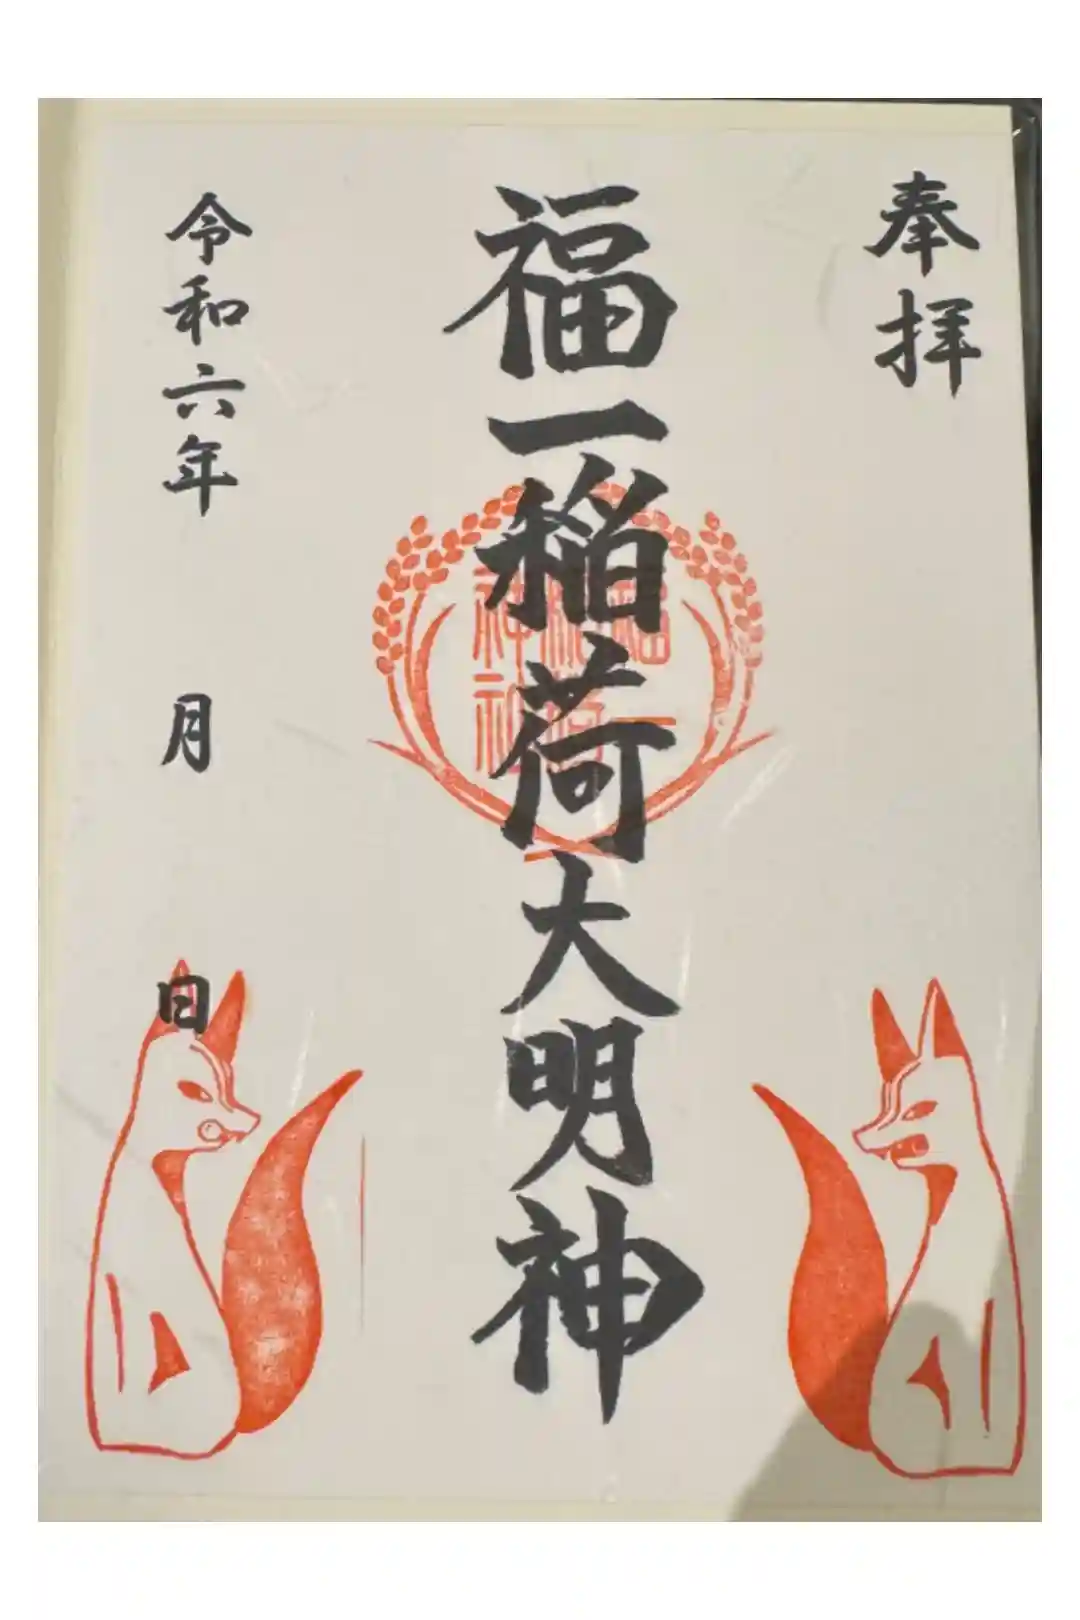 奉拝
福一稲荷大明神
令和六年 月 日